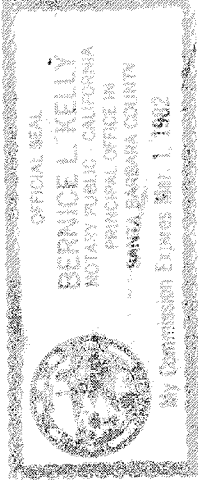 OFFICIAL SEAL
BERNICE L. KELLY
NOTARY PUBLIC - CALIFORNIA
PRINCIPAL OFFICE IN
SANTA BARBARA COUNTY
My Commission Expires 1,